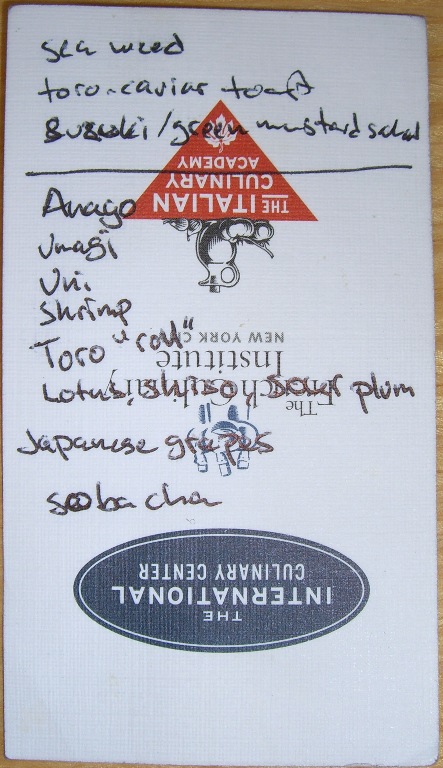 sea weed
toro-caviar toast
Suzuki/green mustard salad
Anago
Unagi
Uni
Shrimp
Toro "roll"
Lotus, shiso sour plum
Japanese grapes
soba cha
THE
INTERNATIONAL
CULINARY CENTER
The
French Culinary
Institute
NEW YORK CITY
THE ITALIAN
CULINARY
ACADEMY